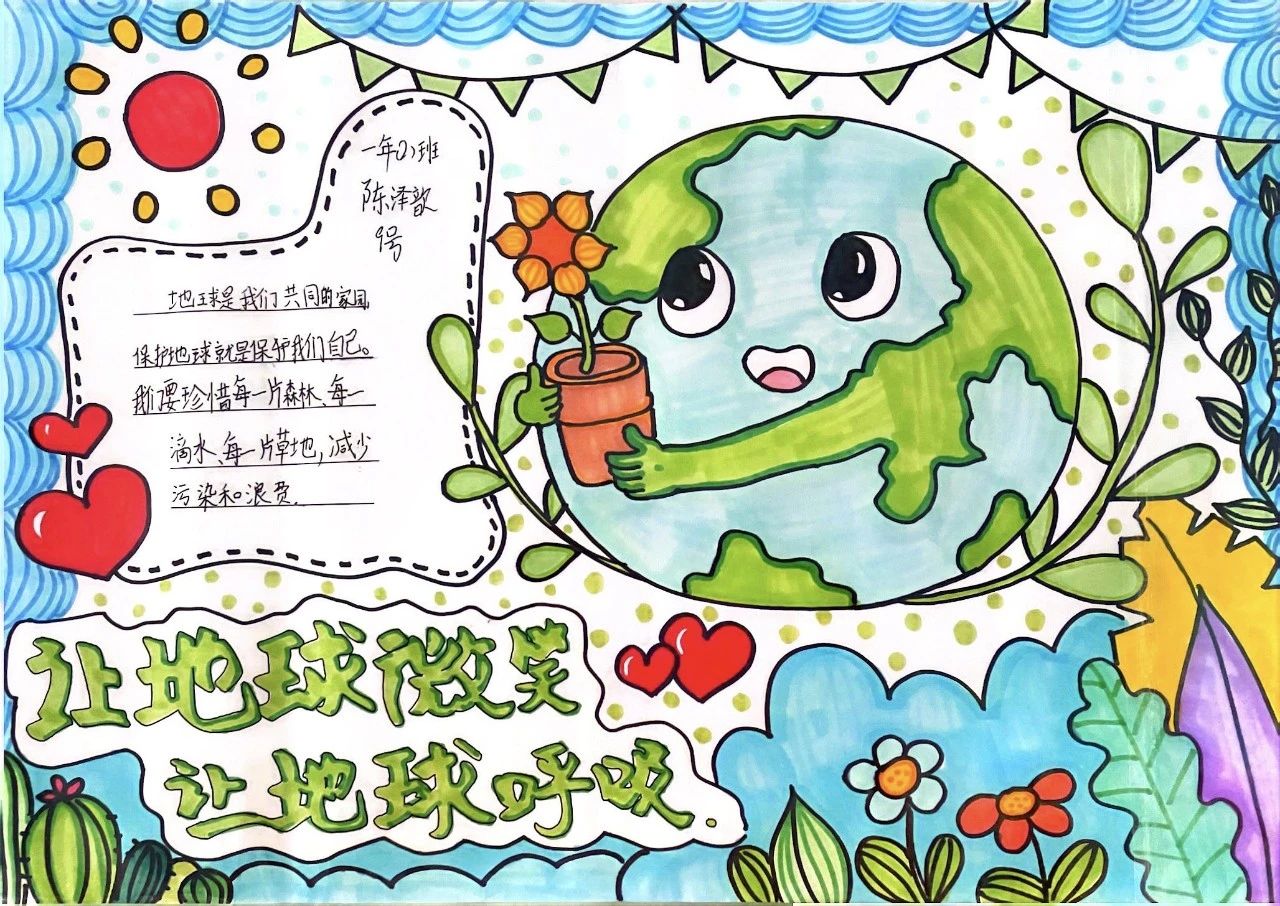 一年(2)班
陈泽歆
9号
地球是我们共同的家园
保护地球就是保护我们自己。
我们要珍惜每一片森林、每一
滴水、每一片草地,减少
污染和浪费.
让地球微笑
让地球呼吸.